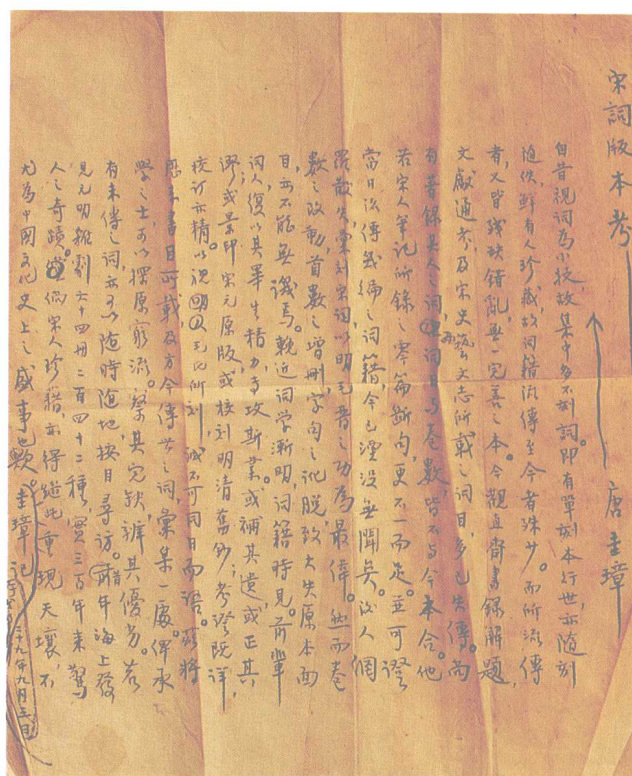 宋詞版本考
唐圭璋
自昔視詞為小技，故集中多不刻詞。即有單刻本行世，亦隨刻
隨佚，鮮有人珍藏，故詞籍流傳至今者殊少。而所流傳
者，又皆殘缺錯亂，無一完善之本。今觀直齋書錄解題、
文獻通考及宋史藝文志所載之詞目，多已失傳。而
有著錄其人之詞，詞目與卷數，皆不與今本合。他
若宋人筆記所錄之零篇斷句，更不一而足。並可證
當日後傳幾編之詞籍，今已湮沒無聞矣。汲人網
羅散失，彙刻宋詞，以明毛晉之功為最偉。然而卷
數之改動，首數之增刪，字句之訛脫，致大失原本面
目，亦不能無譏焉。輓近詞學漸明，詞籍時見。前輩
詞人，復以其畢生精力，專攻斯業。或補其遺，或正其
謬，或景印宋元原版，或校刻明清舊鈔，考證既詳，
校訂亦精，以視毛氏所刻，誠不可同日而語。茲將
歷來書目所載，及方今傳世之詞，彙集一處，俾承
學之士，可以探原窮流，察其完缺，辨其優劣。若
有未傳之詞，亦可以隨時隨地，按目尋訪。前年海上發
見元明雜劇六十四冊，二百四十二種，實三百年來驚
人之奇蹟。倘宋人珍籍，亦得繼此重現天壤，不
尤為中國文化史上之盛事也歟。圭璋記
二十九年九月三日